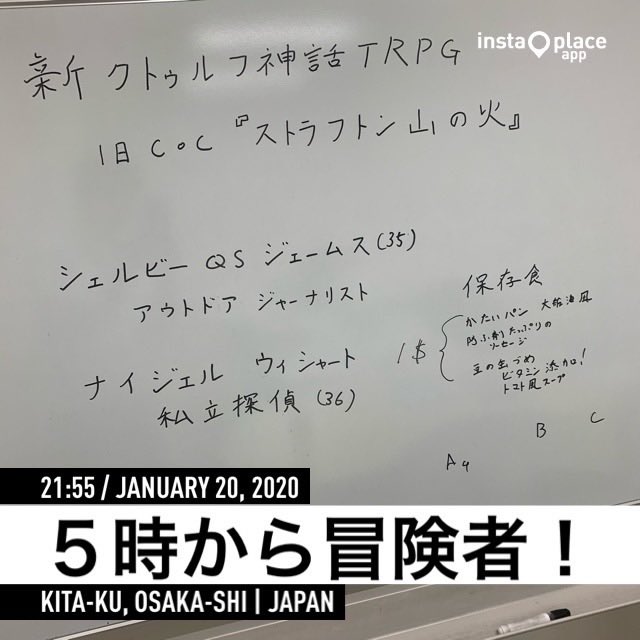 insta place
app
新クトゥルフ神話TRPG
旧CoC『ストラフトン山の火』
シェルビー QS ジェームス(35)
アウトドア ジャーナリスト
ナイジェル ウィシャート
私立探偵(36)
保存食
1$
かたいパン 大佐油風
防ふ剤たっぷりの
ソーセージ
豆の缶づめ
ビタミン添加!
トマト風スープ
A4
B
C
21:55 / JANUARY 20, 2020
5時から冒険者!
KITA-KU, OSAKA-SHI | JAPAN